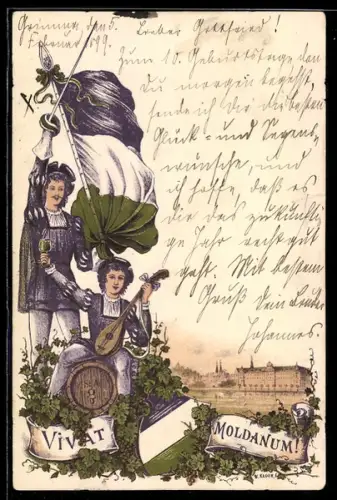 Grimma, den 5.
Februar 1899.
Lieber Gottfried!
Zum 10. Geburtstage den
Du morgen begehst,
sende ich Dir die besten
Glück- und Segens-
wünsche, und
ich hoffe, daß es
dir das zukünfti-
ge Jahr recht gut
geht. Mit bestem
Gruß Dein Bruder
Johannes.
VIVAT
MOLDANUM!